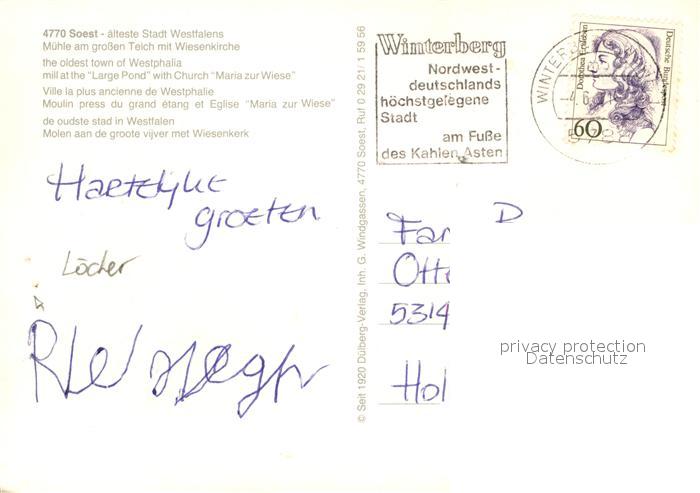 4770 Soest - älteste Stadt Westfalens
Mühle am großen Teich mit Wiesenkirche
the oldest town of Westphalia
mill at the "Large Pond" with Church "Maria zur Wiese"
Ville la plus ancienne de Westphalie
Moulin press du grand étang et Eglise "Maria zur Wiese"
de oudste stad in Westfalen
Molen aan de groote vijver met Wiesenkerk
Hartelijke
groeten
Löcher
© Seit 1920 Dülberg-Verlag, Inh. G. Windgassen, 4770 Soest, Ruf 0 29 21/ 1 59 56
Winterberg
Nordwest-
deutschlands
höchstgelegene
Stadt
am Fuße
des Kahlen Asten
WINTERB
Dorothea Erxleben
Deutsche Bundespost
60
D
Fam
Otte
5314
Hol
privacy protection
Datenschutz